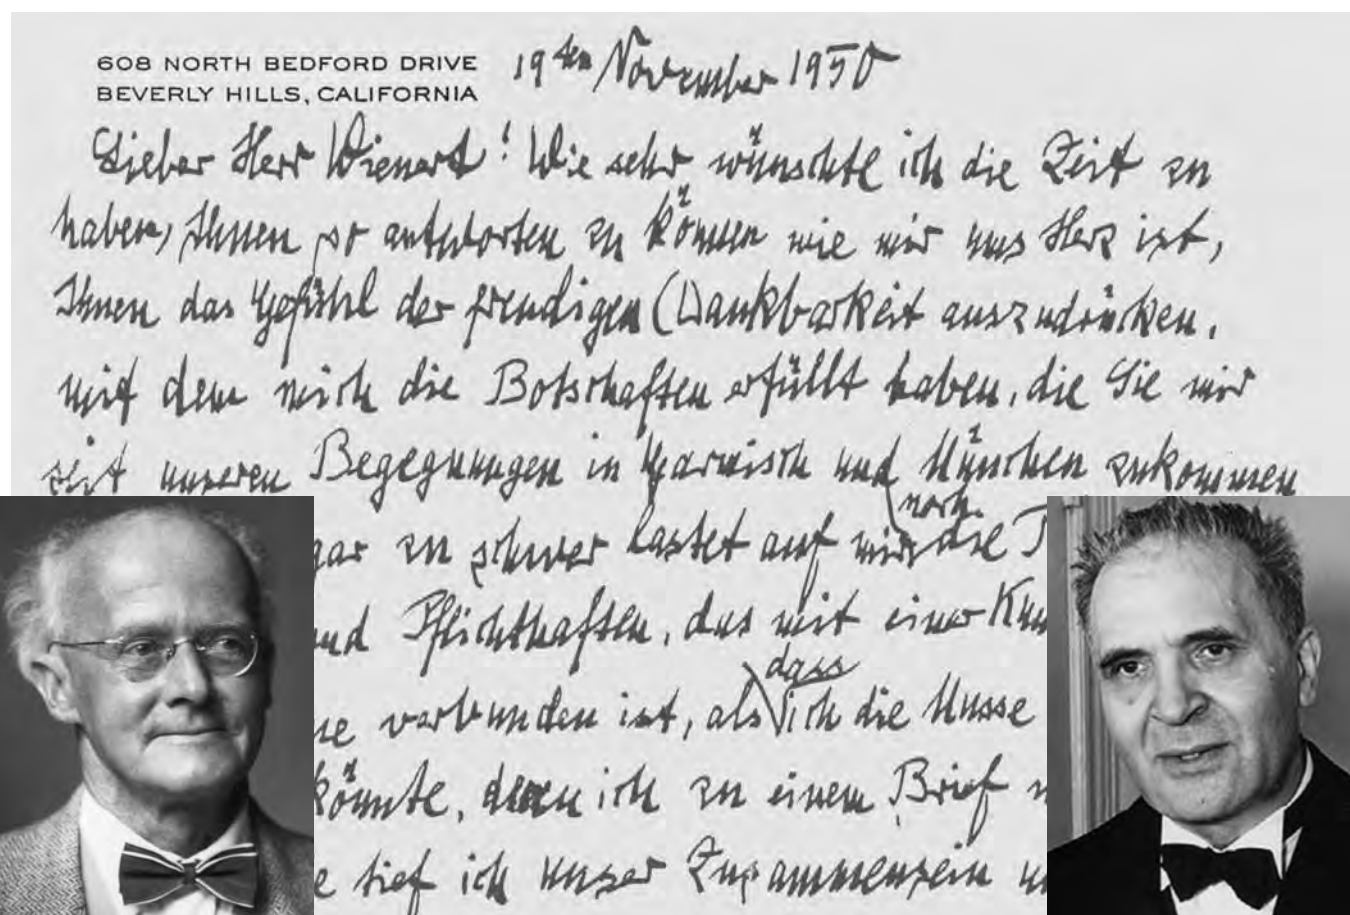 608 NORTH BEDFORD DRIVE
BEVERLY HILLS, CALIFORNIA
19ten November 1950
Lieber Herr Wienert! Wie sehr wünschte ich die Zeit zu
haben, Ihnen so antworten zu können wie mir ums Herz ist,
Ihnen das Gefühl der freudigen Dankbarkeit auszudrücken,
mit dem mich die Botschaften erfüllt haben, die Sie mir
seit unseren Begegnungen in Garmisch und München zukommen
gar zu schwer lastet auf mir noch die
und Pflichthaften, das mit einer
verbunden ist, als dass ich die Musse
könnte, deren ich zu einem Brief
tief ich unser Zusammensein